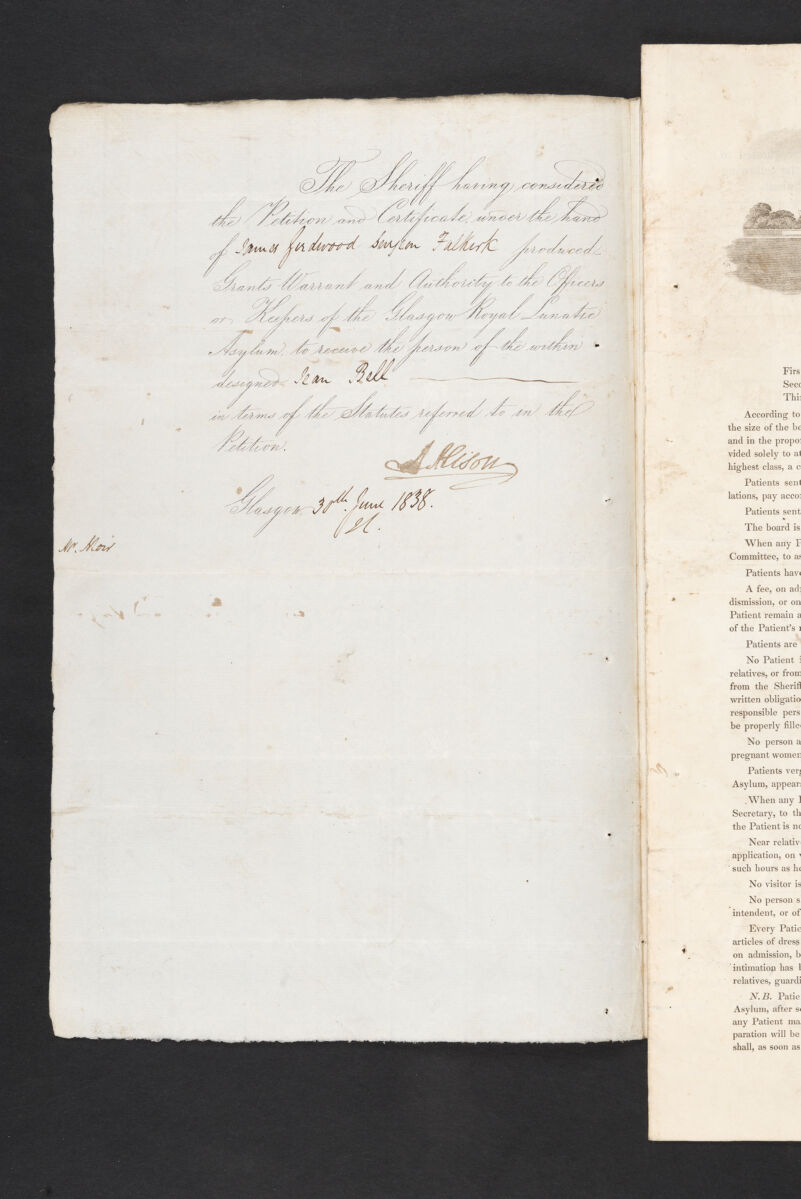 The Sheriff having considered
the Petition and Certificate under the hand
of James Girdwood Surgeon Falkirk produced
Grants Warrant and Authority to the Officers
or Keepers of the Glasgow Royal Lunatic
Asylum to receive the person of the within
designed Jean Bell
in terms of the Statutes referred to in the
Petition.
A Alison
Glasgow 30th. June 1838.
Mr. Moir
Firs
Seco
Thi
According to
the size of the be
and in the propo
vided solely to at
highest class, a c
Patients sent
lations, pay acco
Patients sent
The board is
When any P
Committee, to as
Patients have
A fee, on ad
dismission, or on
Patient remain a
of the Patient's
Patients are
No Patient
relatives, or from
from the Sheriff
written obligatio
responsible pers
be properly fille
No person a
pregnant women
Patients verg
Asylum, appear
When any
Secretary, to th
the Patient is no
Near relativ
application, on
such hours as he
No visitor is
No person s
intendent, or of
Every Patie
articles of dress
on admission, b
intimation has
relatives, guardi
N.B. Patie
Asylum, after s
any Patient ma
paration will be
shall, as soon as